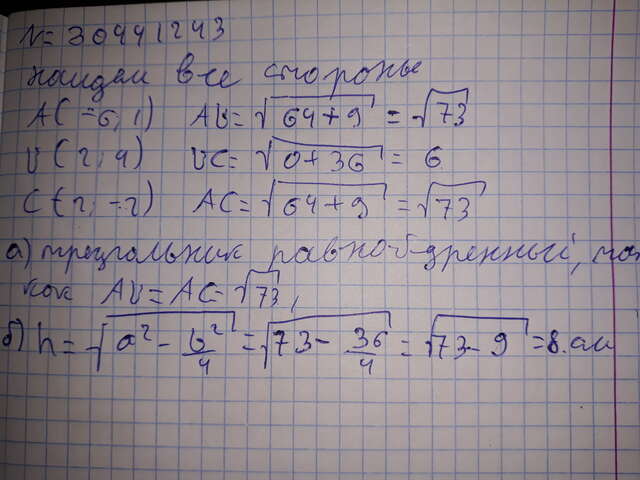 N=30441243
найдем все стороны
A(-6,1) AB=√64+9=√73
B(2;4) BC=√0+36=6
C(2;-2) AC=√64+9=√73
а) треугольник равнобедренный, так
как AB=AC=√73,
б) h=√a²-b²/4=√73-36/4=√73-9=8.см